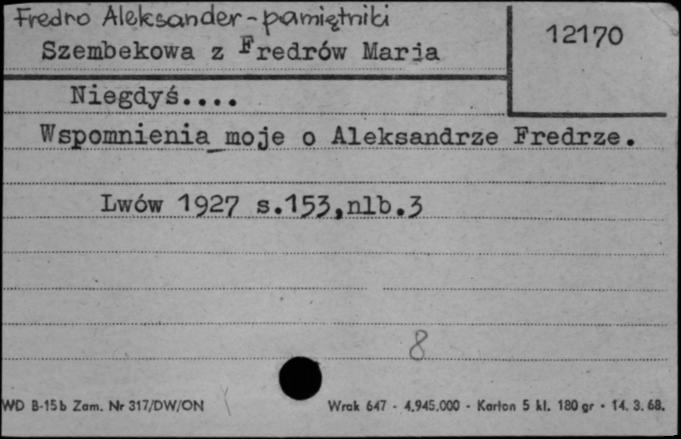 Fredro Aleksander - pamiętniki
12170
Szembekowa z Fredrów Marja
Niegdyś....
Wspomnienia moje o Aleksandrze Fredrze.
Lwów 1927 s.153,nlb.3
8
WD B-15b Zam. Nr 317/DW/ON
Wrak 647 - 4.945.000 - Karton 5 kl. 180 gr - 14. 3. 68.